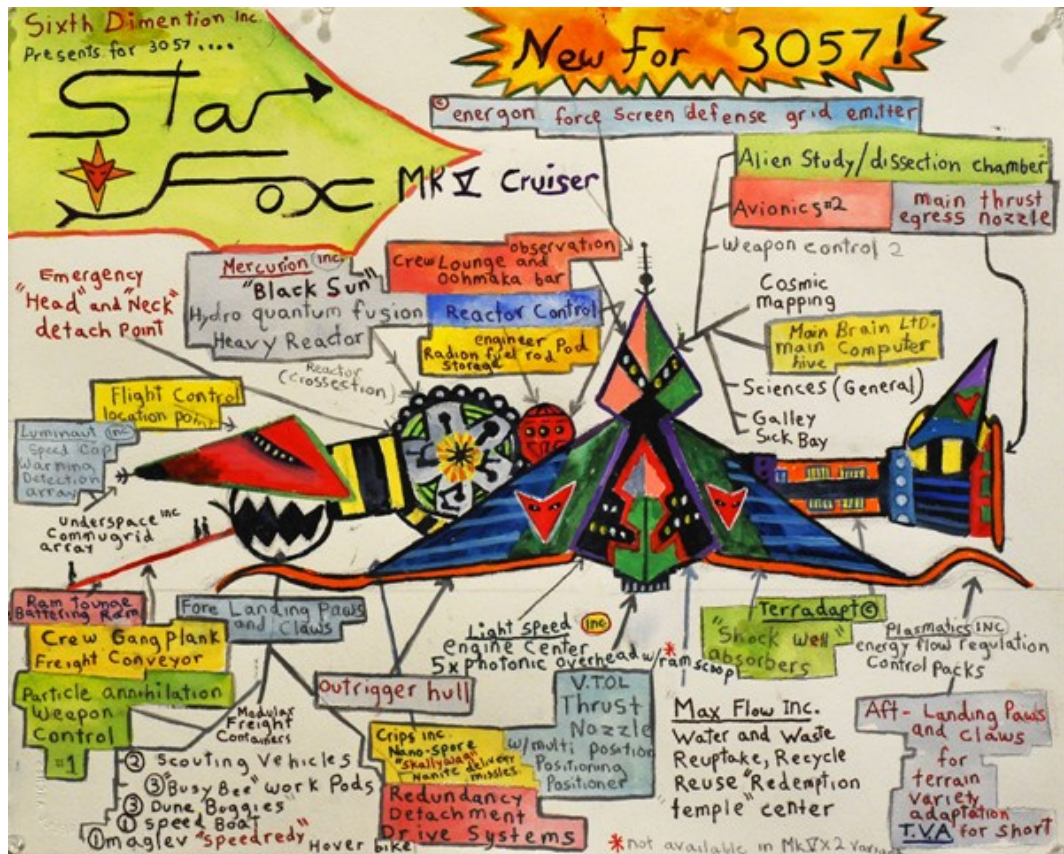 Sixth Dimention Inc.
Presents for 3057....
Star
Fox
MK V Cruiser
New For 3057!
© energon force screen defense grid emitter
Alien Study/dissection chamber
Avionics #2
main thrust
egress nozzle
Weapon control 2
Cosmic
mapping
Main Brain LTD.
main Computer
hive
Sciences (General)
Galley
Sick Bay
observation
Crew Lounge and
Oohmaka bar
Reactor Control
engineer Pod
Radion fuel rod
Storage
Mercurion inc.
"Black Sun"
Hydro quantum fusion
Heavy Reactor
Reactor
(crossection)
Emergency
"Head" and "Neck"
detach Point
Flight Control
location point
Luminaut inc
Speed Cap
Warning
Detection
array
underspace inc
Commugrid
array
Ram Tounge
Battering Ram
Crew Gang Plank
Freight Conveyor
Particle annihilation
Weapon
Control
#1
Fore Landing Paws
and Claws
Modular
Freight
Containers
② Scouting Vehicles
③ "Busy Bee" work Pods
③ Dune Boggies
① Speed Boat
① maglev "Speedredy" Hover bike
outrigger hull
Crips inc.
Nano-spore
"Skallywag"
nanite delivery
missles.
Redundancy
Detachment
Drive Systems
Light Speed inc
engine Center
5x photonic overhead w/ram scoop*
V.T.O.L
Thrust
Nozzle
w/multi position
Positioning
Positioner
Max Flow Inc.
Water and Waste
Reuptake, Recycle
Reuse "Redemption
temple" center
*not available in MKVX2
Terradapt ©
"Shock well"
absorbers
Plasmatics INC
energy flow regulation
Control packs
Aft-Landing Paws
and Claws
for
terrain
variety
adaptation
T.V.A for short